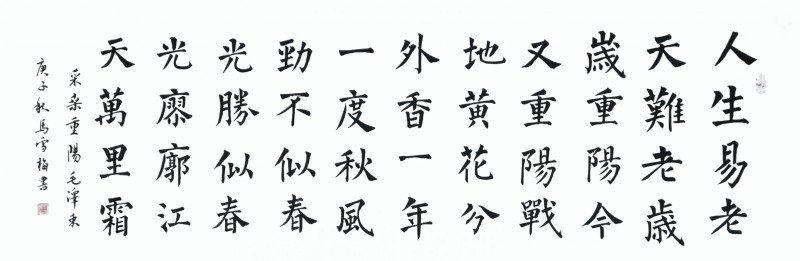 人生易老
天難老歲
歲重陽今
又重陽戰
地黄花分
外香一年
一度秋風
勁不似春
光勝似春
光廖廓江
天萬里霜
采桑重陽毛澤東
庚子秋馬雪梅書